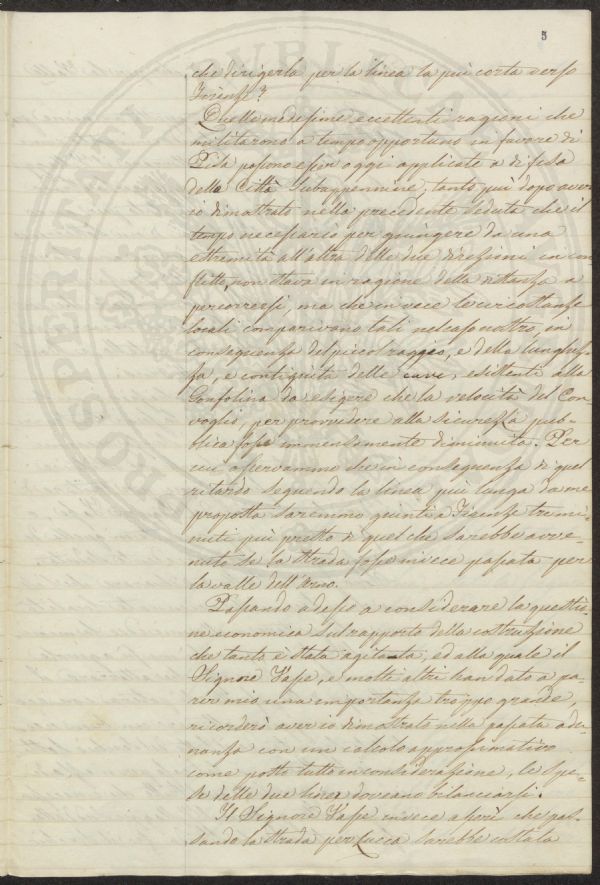 5
che dirigerla per la linea la più corta verso
Firenze?
Quelle medesime eccellenti ragioni che
militarono a tempo opportuno in favore di
Pisa possono esser oggi applicate a difesa
delle Città Subappennine, tanto più dopo aver
io dimostrato nella precedente seduta che il
tempo necessario per giungere da una
estremità all'altra delle due direzioni in con-
flitto, non stava in ragione della distanza a
percorrersi, ma che invece le circostanze
locali comparivano tali nel caso nostro, in
conseguenza del piccol raggio, e della lunghez-
za, e contiguità delle curve, esistenti alla
Gonfolina da esigere che la velocità del Con-
voglio, per provvedere alla sicurezza pub-
blica fosse immensamente diminuita. Per
cui osservammo che in conseguenza di quel
ritardo seguendo la linea più lunga da me
proposta saremmo giunti a Firenze tre mi-
nuti più presto di quel che sarebbe avve-
nuto se la strada fosse invece passata per
la valle dell'Arno.
Passando adesso a considerare la questio-
ne economica sul rapporto della costruzione
che tanto è stata agitata, ed alla quale il
Signore e molti altri han dato a pa-
rer mio una importanza troppo grande,
ricorderò aver io dimostrato nella passata adu-
nanza con un calcolo approssimativo
come posto tutto in considerazione, le spe-
se delle due linee doveano bilanciarsi.
Il Signore invece asserì che pas-
sando la strada per Lucca sarebbe costata